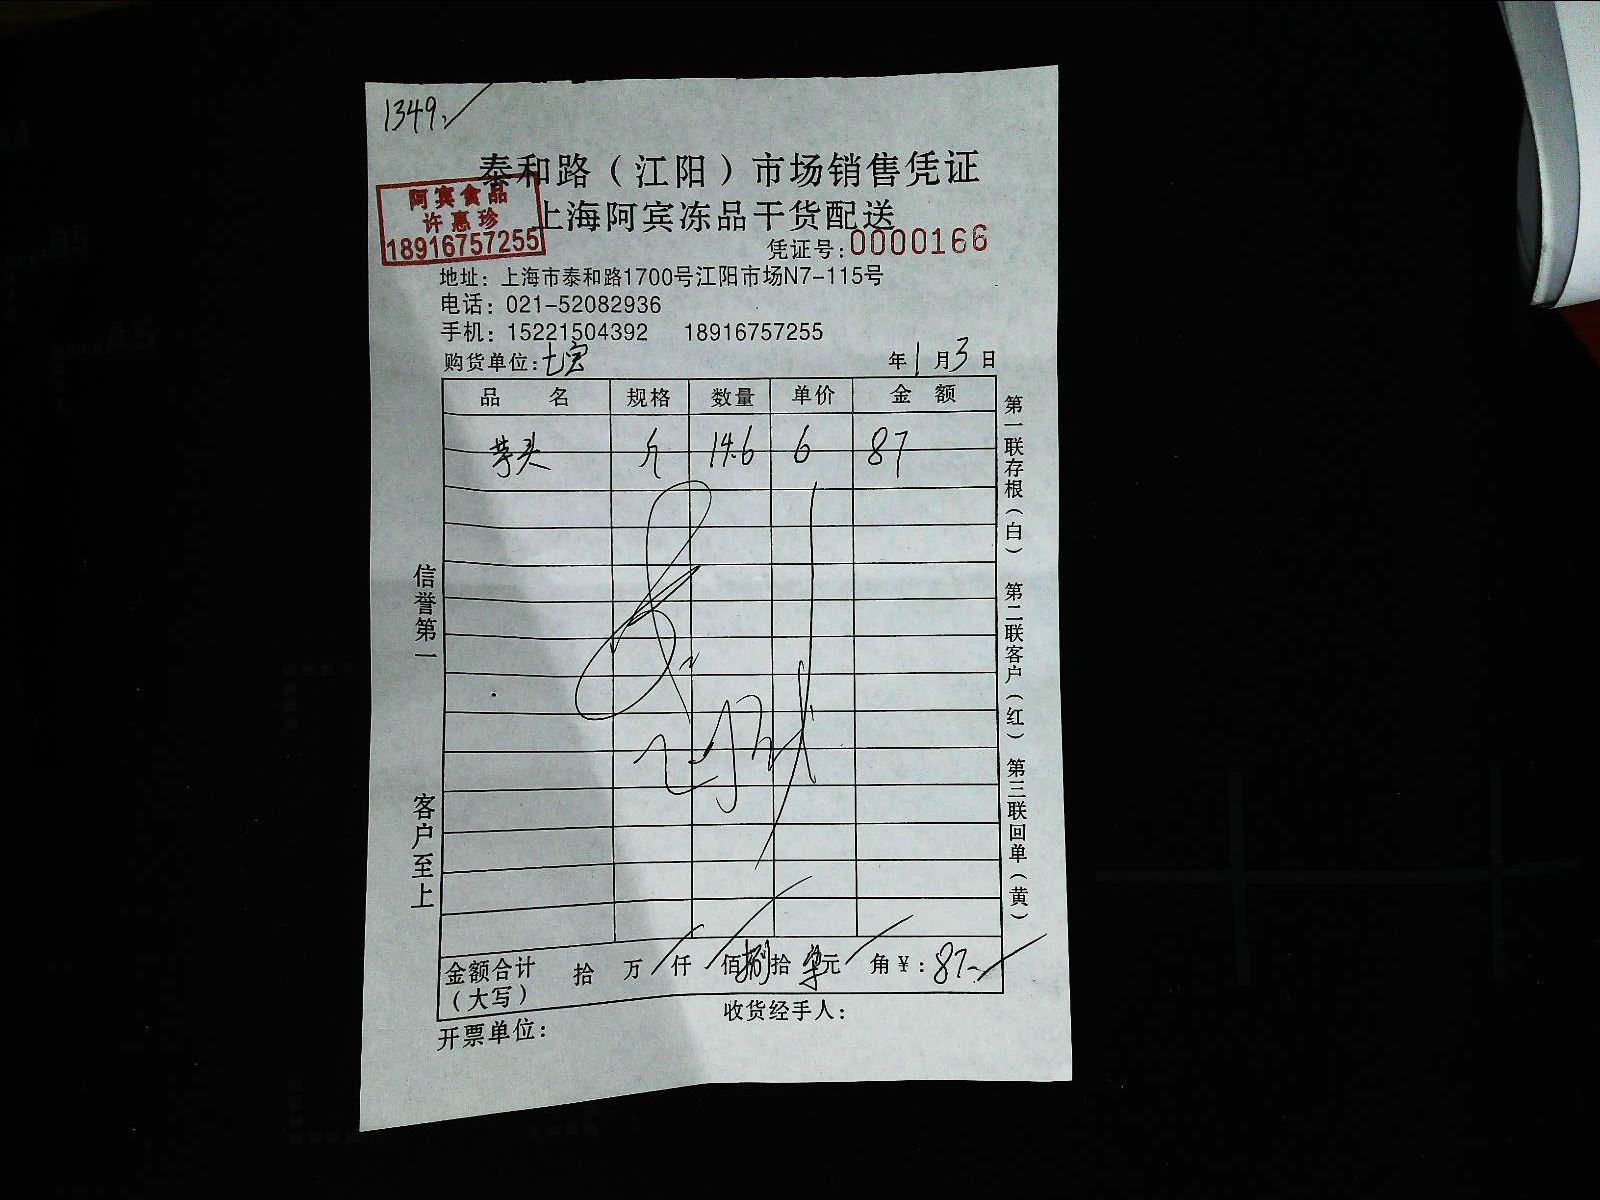 1349.
泰和路（江阳）市场销售凭证
阿宾食品
许惠珍
18916757255
上海阿宾冻品干货配送
凭证号:0000166
地址：上海市泰和路1700号江阳市场N7-115号
电话：021-52082936
手机：15221504392 18916757255
购货单位:七宝 年1月3日
品 名 规格 数量 单价 金 额
芋头 斤 14.6 6 87
金额合计（大写） 拾 万 仟 佰捌拾柒元 角¥:87.-
收货经手人：
开票单位：
信誉第一 客户至上
第一联存根（白） 第二联客户（红） 第三联回单（黄）